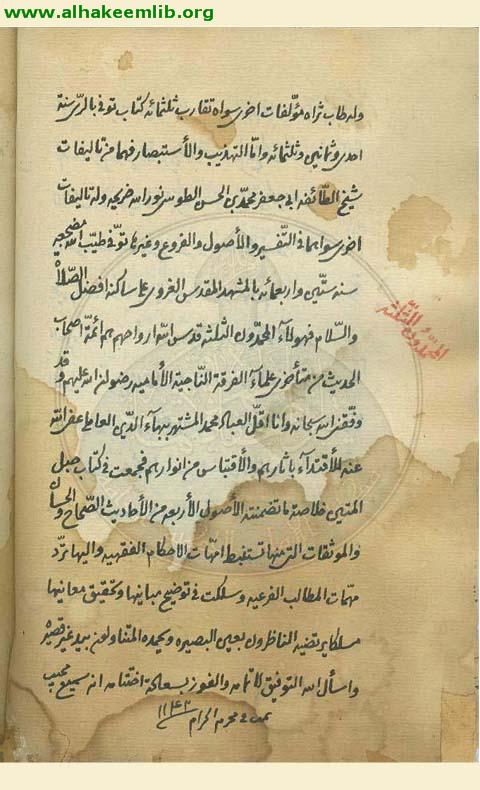 www.alhakeemlib.org
وله طاب ثراه مؤلفات اخرى سواه تقارب ثلثمائه كتاب توفى بالرى سنة
احدى وثمانين وثلثمائه وامّا التهذيب والأستبصار فهما من تاليفات
شيخ الطّائفه ابى جعفر محمد بن الحسن الطوسى نور الله ضريحه وله تاليفات
اخرى سواهما فى التّفسير والأصول والفروع وغيرها توفى طيّب الله مضجعه
سنه ستّين واربعمائه بالمشهد المقدس الغروى على ساكنه افضل الصّلاة
والسّلام فهولاء المحمدون الثلثه قدس الله ارواحهم هم ائمّة اصحاب
المحمدون الثّلثه
الحديث من متأخرى علماء الفرقة النّاجية الأماميه رضوان الله عليهم وقد
وفّقنى الله سبحانه وانا اقلّ العباد محمد المشتهر ببهاء الدّين العاملى عفى الله
عنه للأقتداء باثارهم والأقتباس من انوارهم فجمعت فى كتاب حبل
المتين خلاصة ما تضمنته الأصول الأربعه من الأحاديث الصّحاح والحسان
والموثقات التى منها تستنبط امّهات الاحكام الفقهيه واليها تردّ
مهمّات المطالب الفرعيه وسلكت فى توضيح مبانيها وتحقيق معانيها
مسلكا يرتضيه الناظرون بعين البصيره ويحمده المتناولون بيد غير قصيره
واسأل الله التوفيق لاتمامه والفوز بسعادة اختتامه انه سميع مجيب
تمت فى محرم الحرام